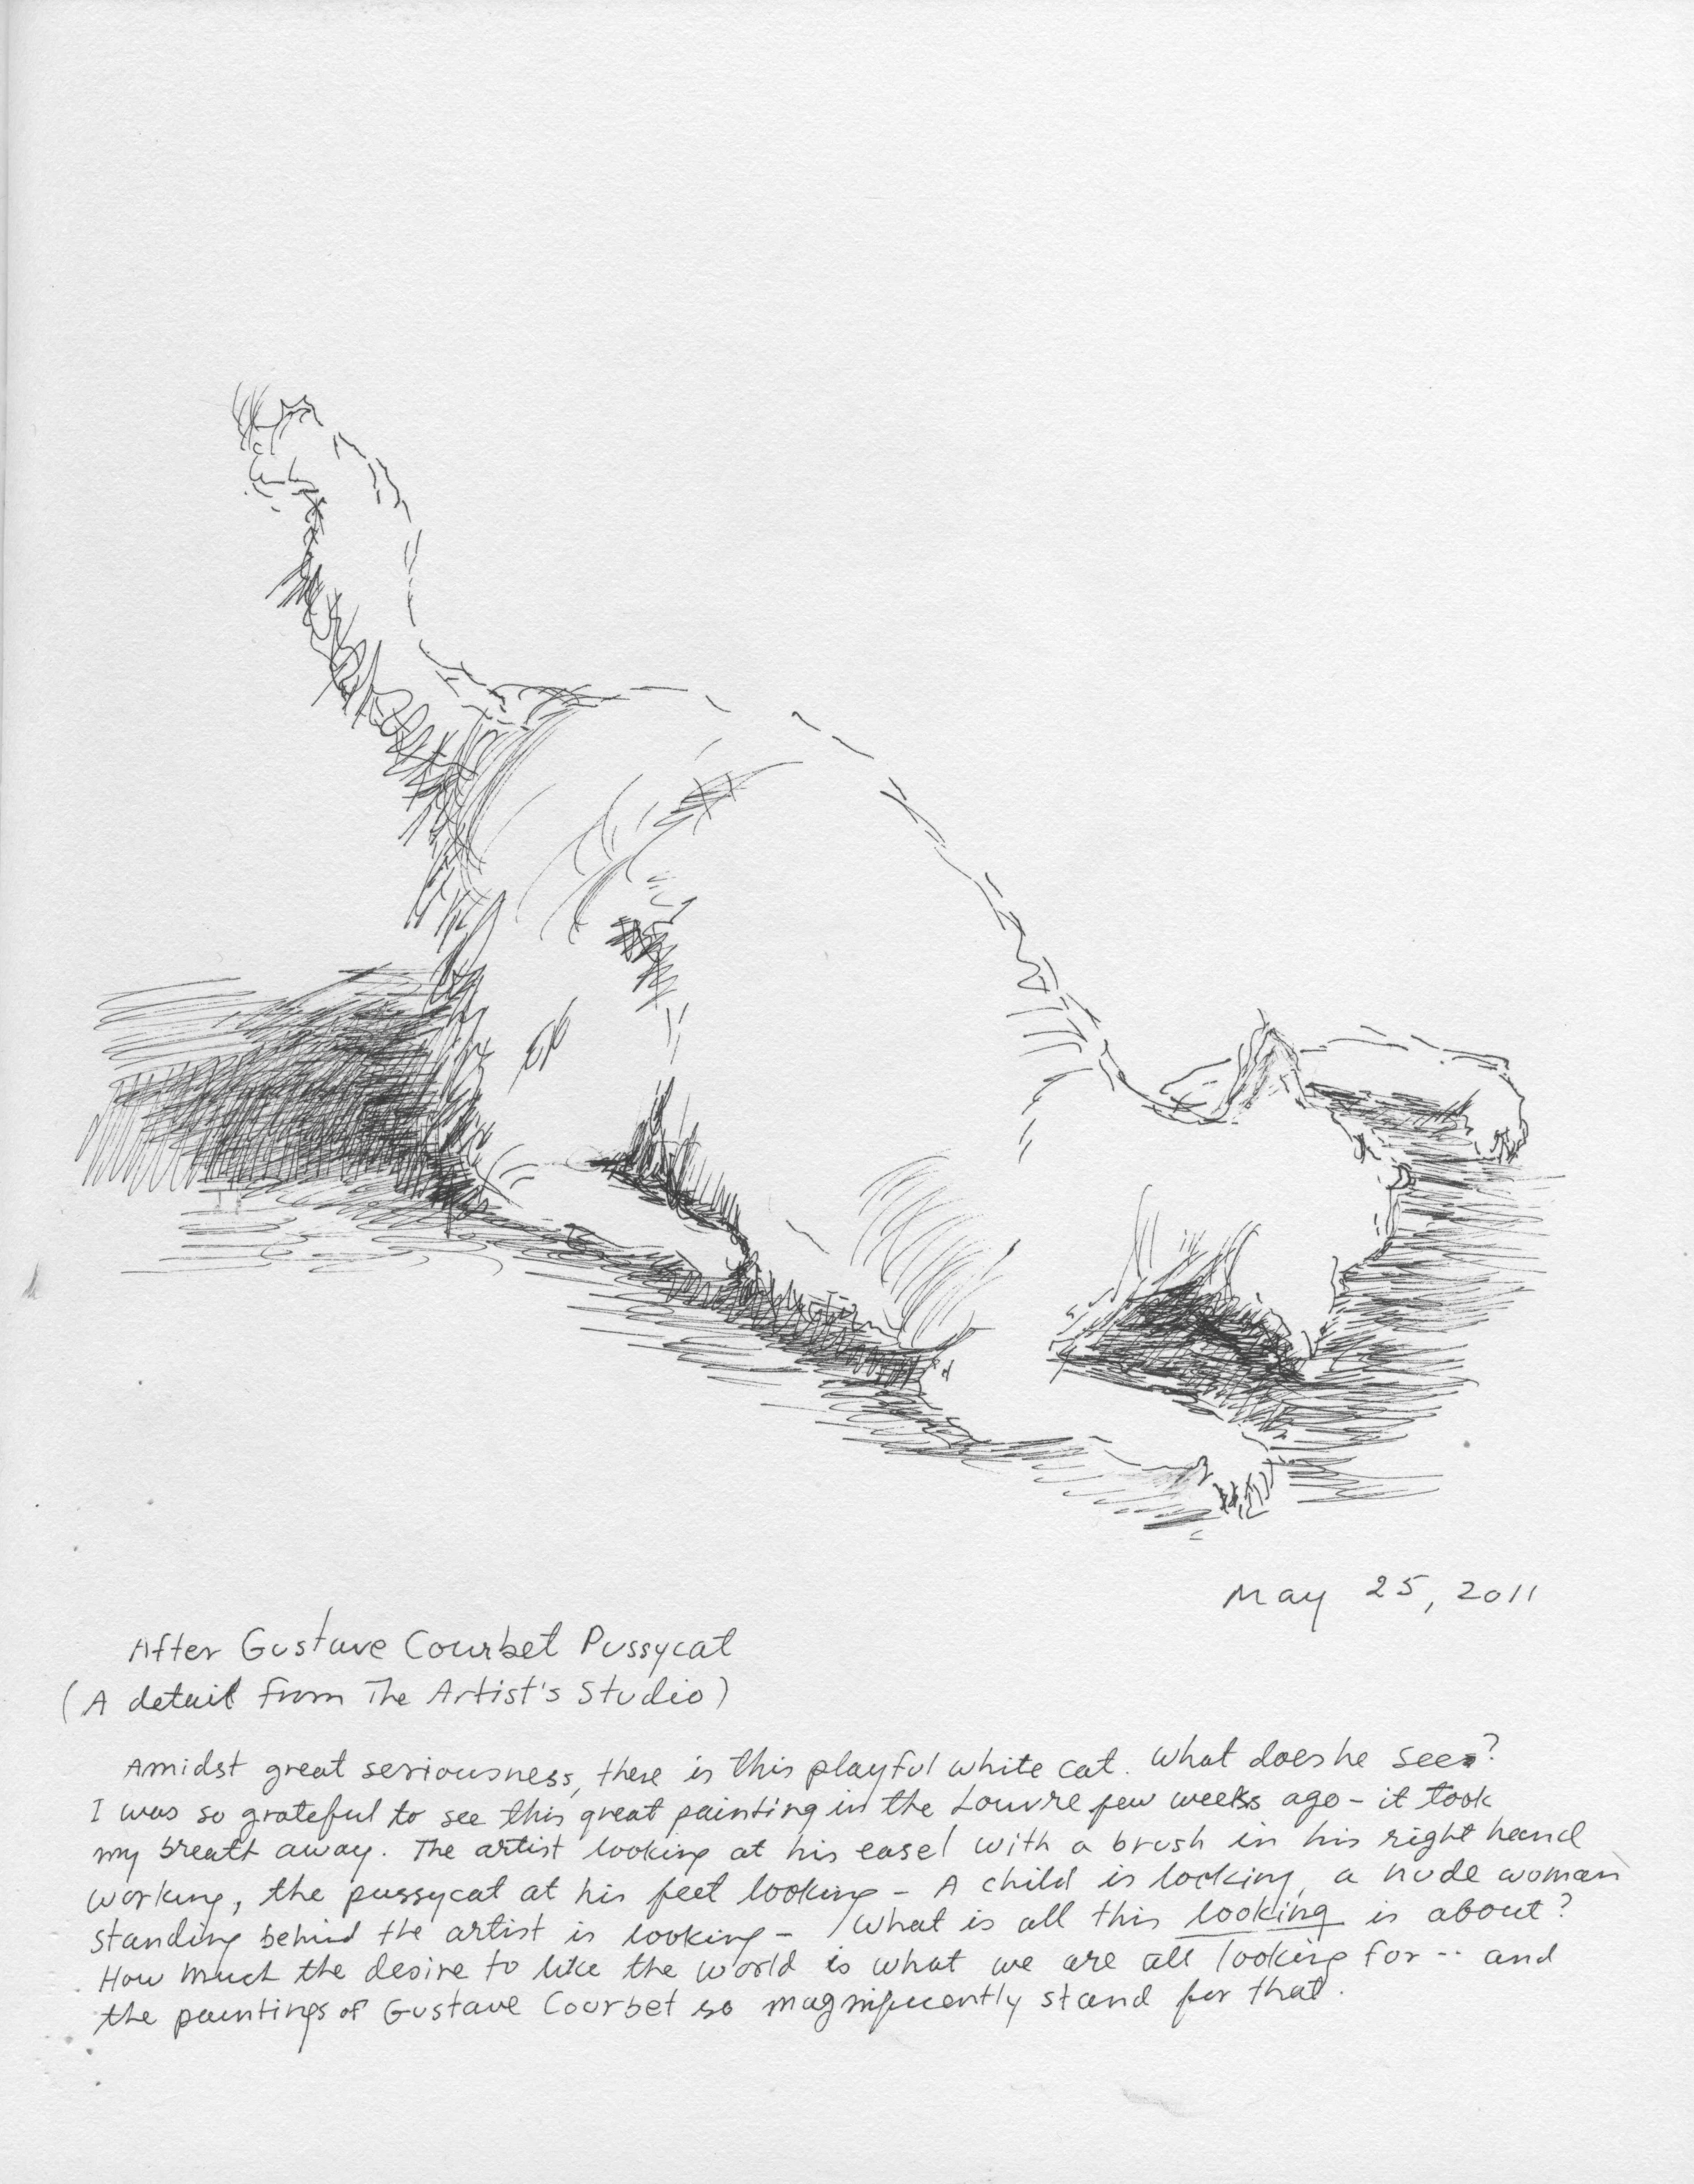 May 25, 2011
After Gustave Courbet Pussycat
(A detail from The Artist's Studio)
Amidst great seriousness, there is this playful white cat. What does he see?
I was so grateful to see this great painting in the Louvre few weeks ago - it took
my breath away. The artist looking at his easel with a brush in his right hand
working, the pussycat at his feet looking - A child is looking, a nude woman
standing behind the artist is looking - What is all this looking is about?
How much the desire to like the world is what we are all looking for -- and
the paintings of Gustave Courbet so magnificently stand for that.